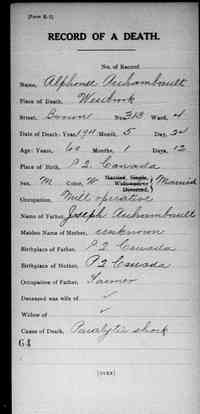 [Form K-2]
RECORD OF A DEATH.
No. of Record
Name, Alphonse Archambault
Place of Death, Westbrook
Street, Brown No. 313 Ward, 4
Date of Death: Year 1911 Month, 5 Day, 24
Age: Years, 60 Months, 1 Days, 12
Place of Birth, P Q Canada
Sex, M Color, W Married, Single, Widowed or Divorced, Married
Occupation, Mill operative
Name of Father, Joseph Archambault
Maiden Name of Mother, unknown
Birthplace of Father, P Q Canada
Birthplace of Mother, P Q Canada
Occupation of Father, Farmer
Deceased was wife of
Widow of
Cause of Death, Paralytic shock
64
[OVER]